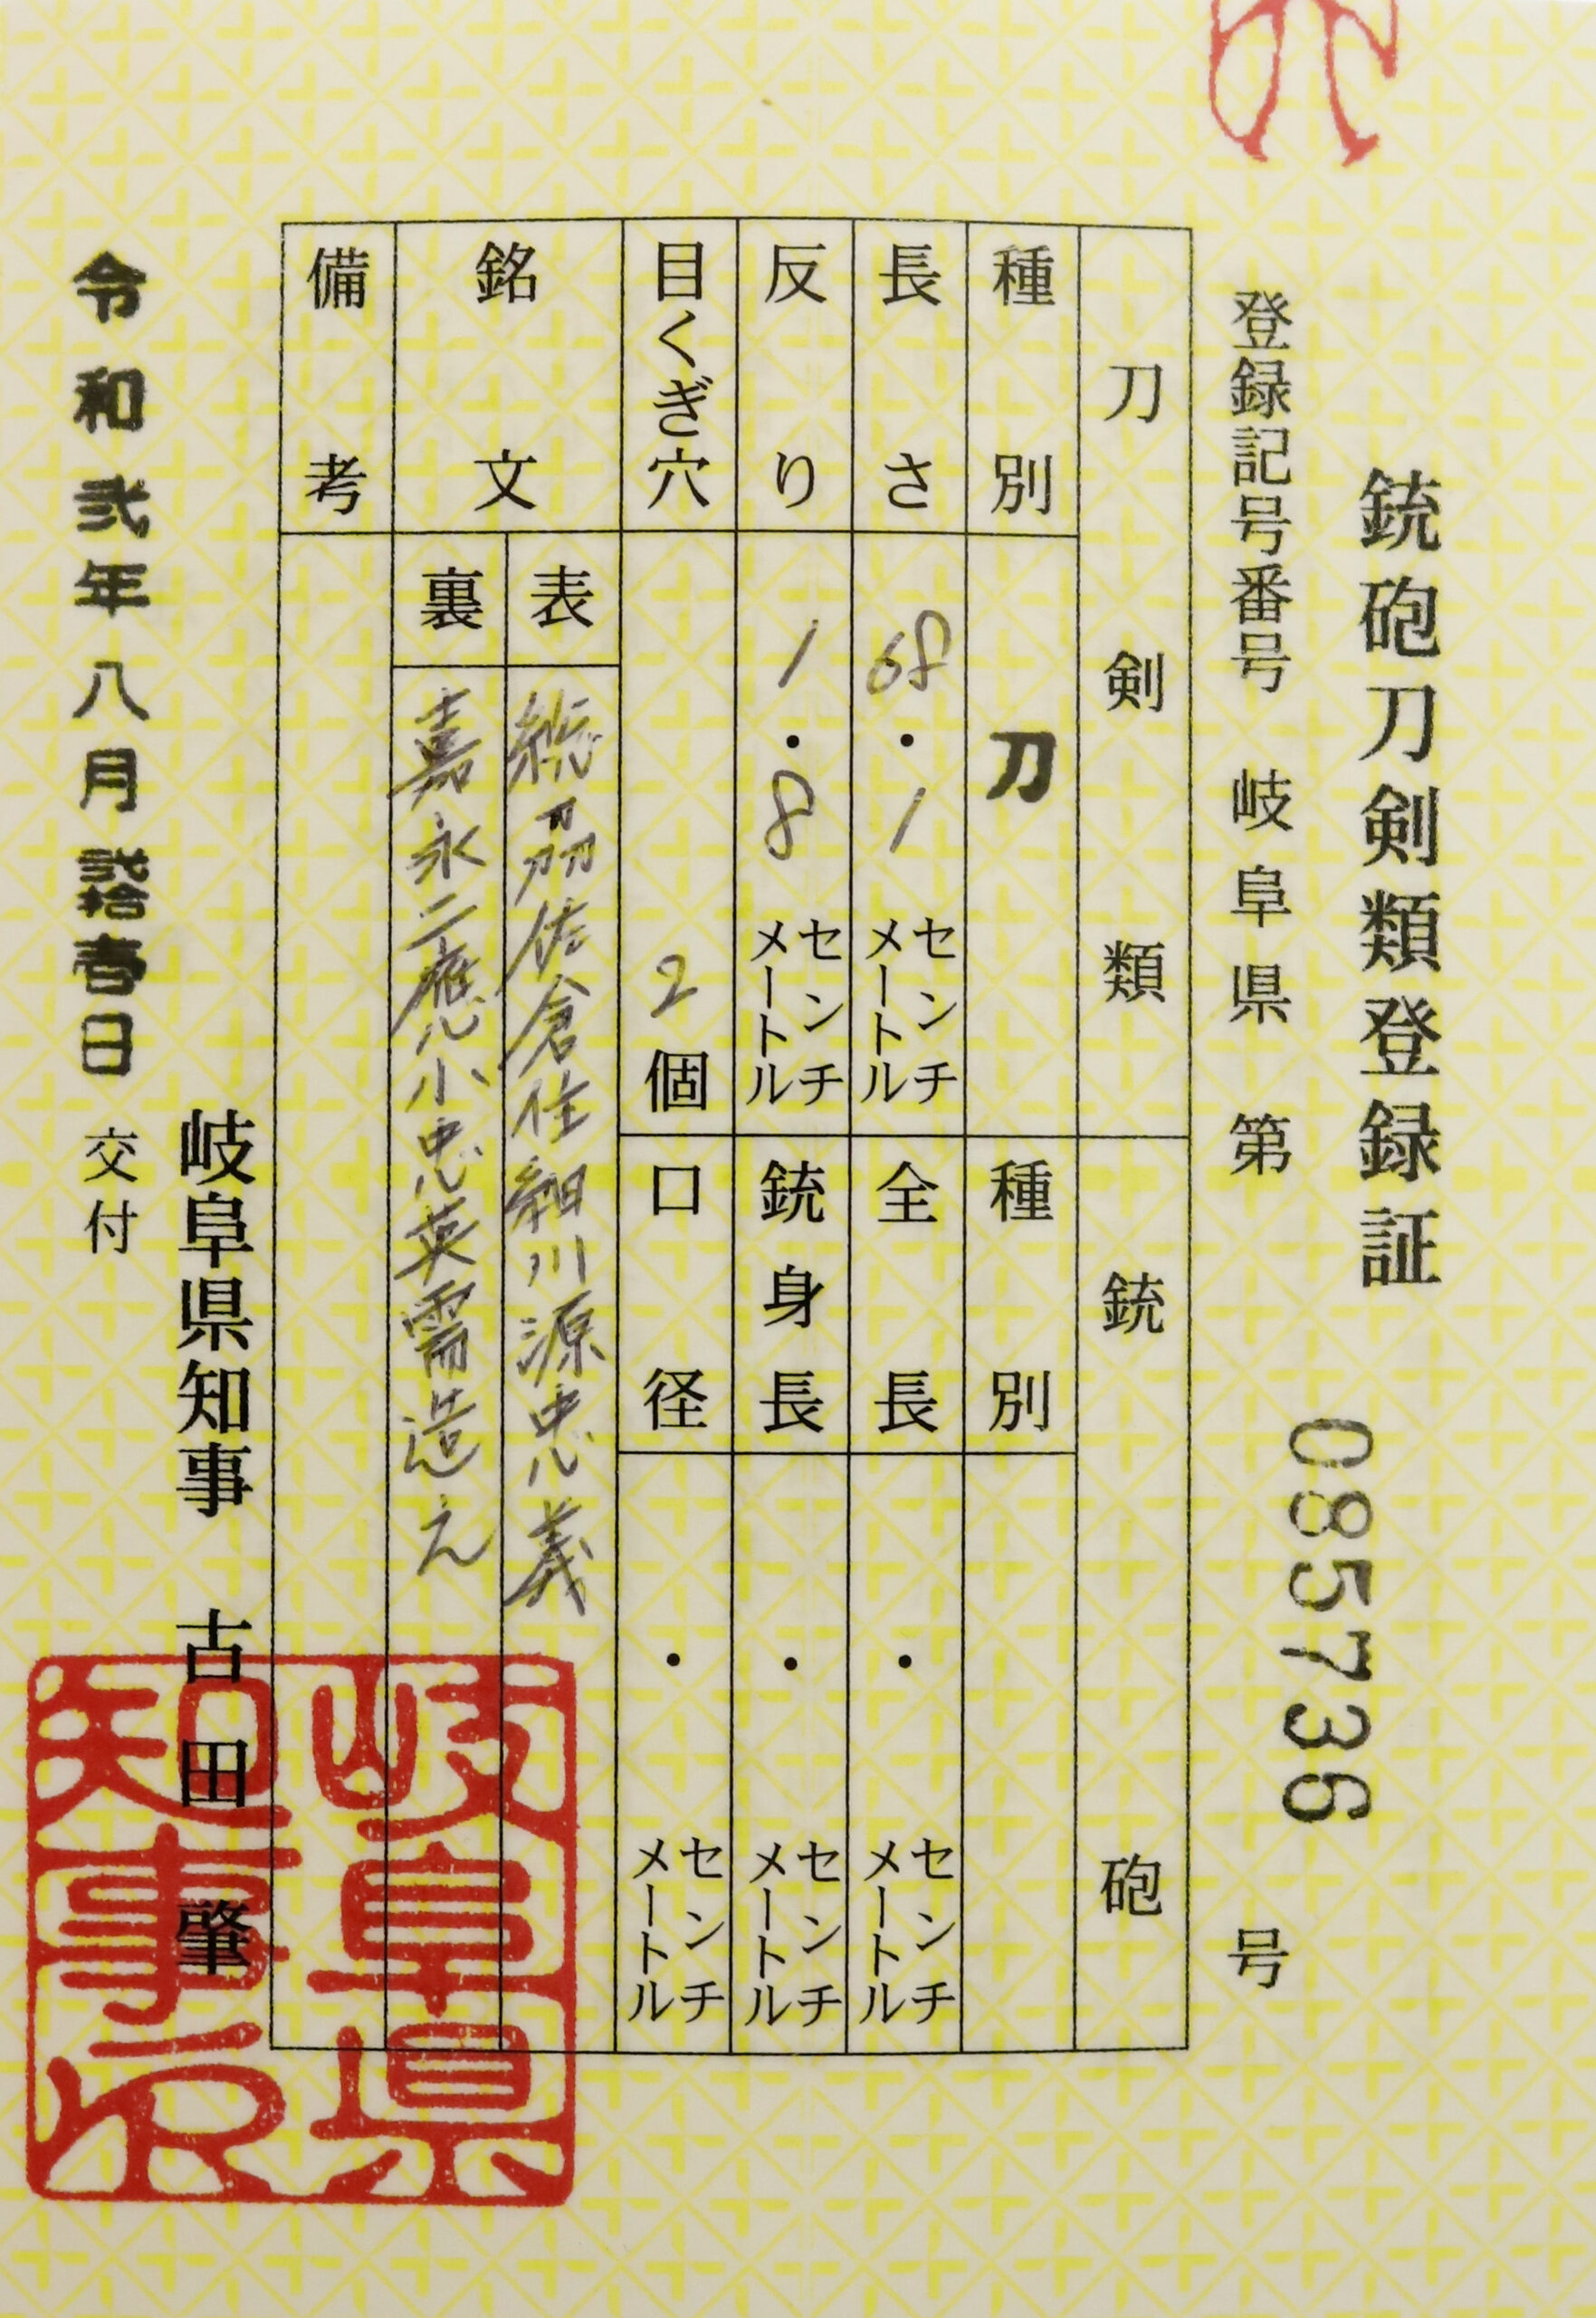 銃砲刀剣類登録証
登録記号番号 岐阜県 第 085736 号
刀剣類 銃砲
種別 刀 種別
長さ 68・1 センチメートル 全長 ・ センチメートル
反り 1・8 センチメートル 銃身長 ・ センチメートル
目くぎ穴 2個 口径 ・ センチメートル
銘文
表 総刕佐倉住細川源忠義
裏 嘉永二應小忠英需造之
備考
令和弐年八月弐拾壱日 交付
岐阜県知事 古田 肇
岐阜県知事之印